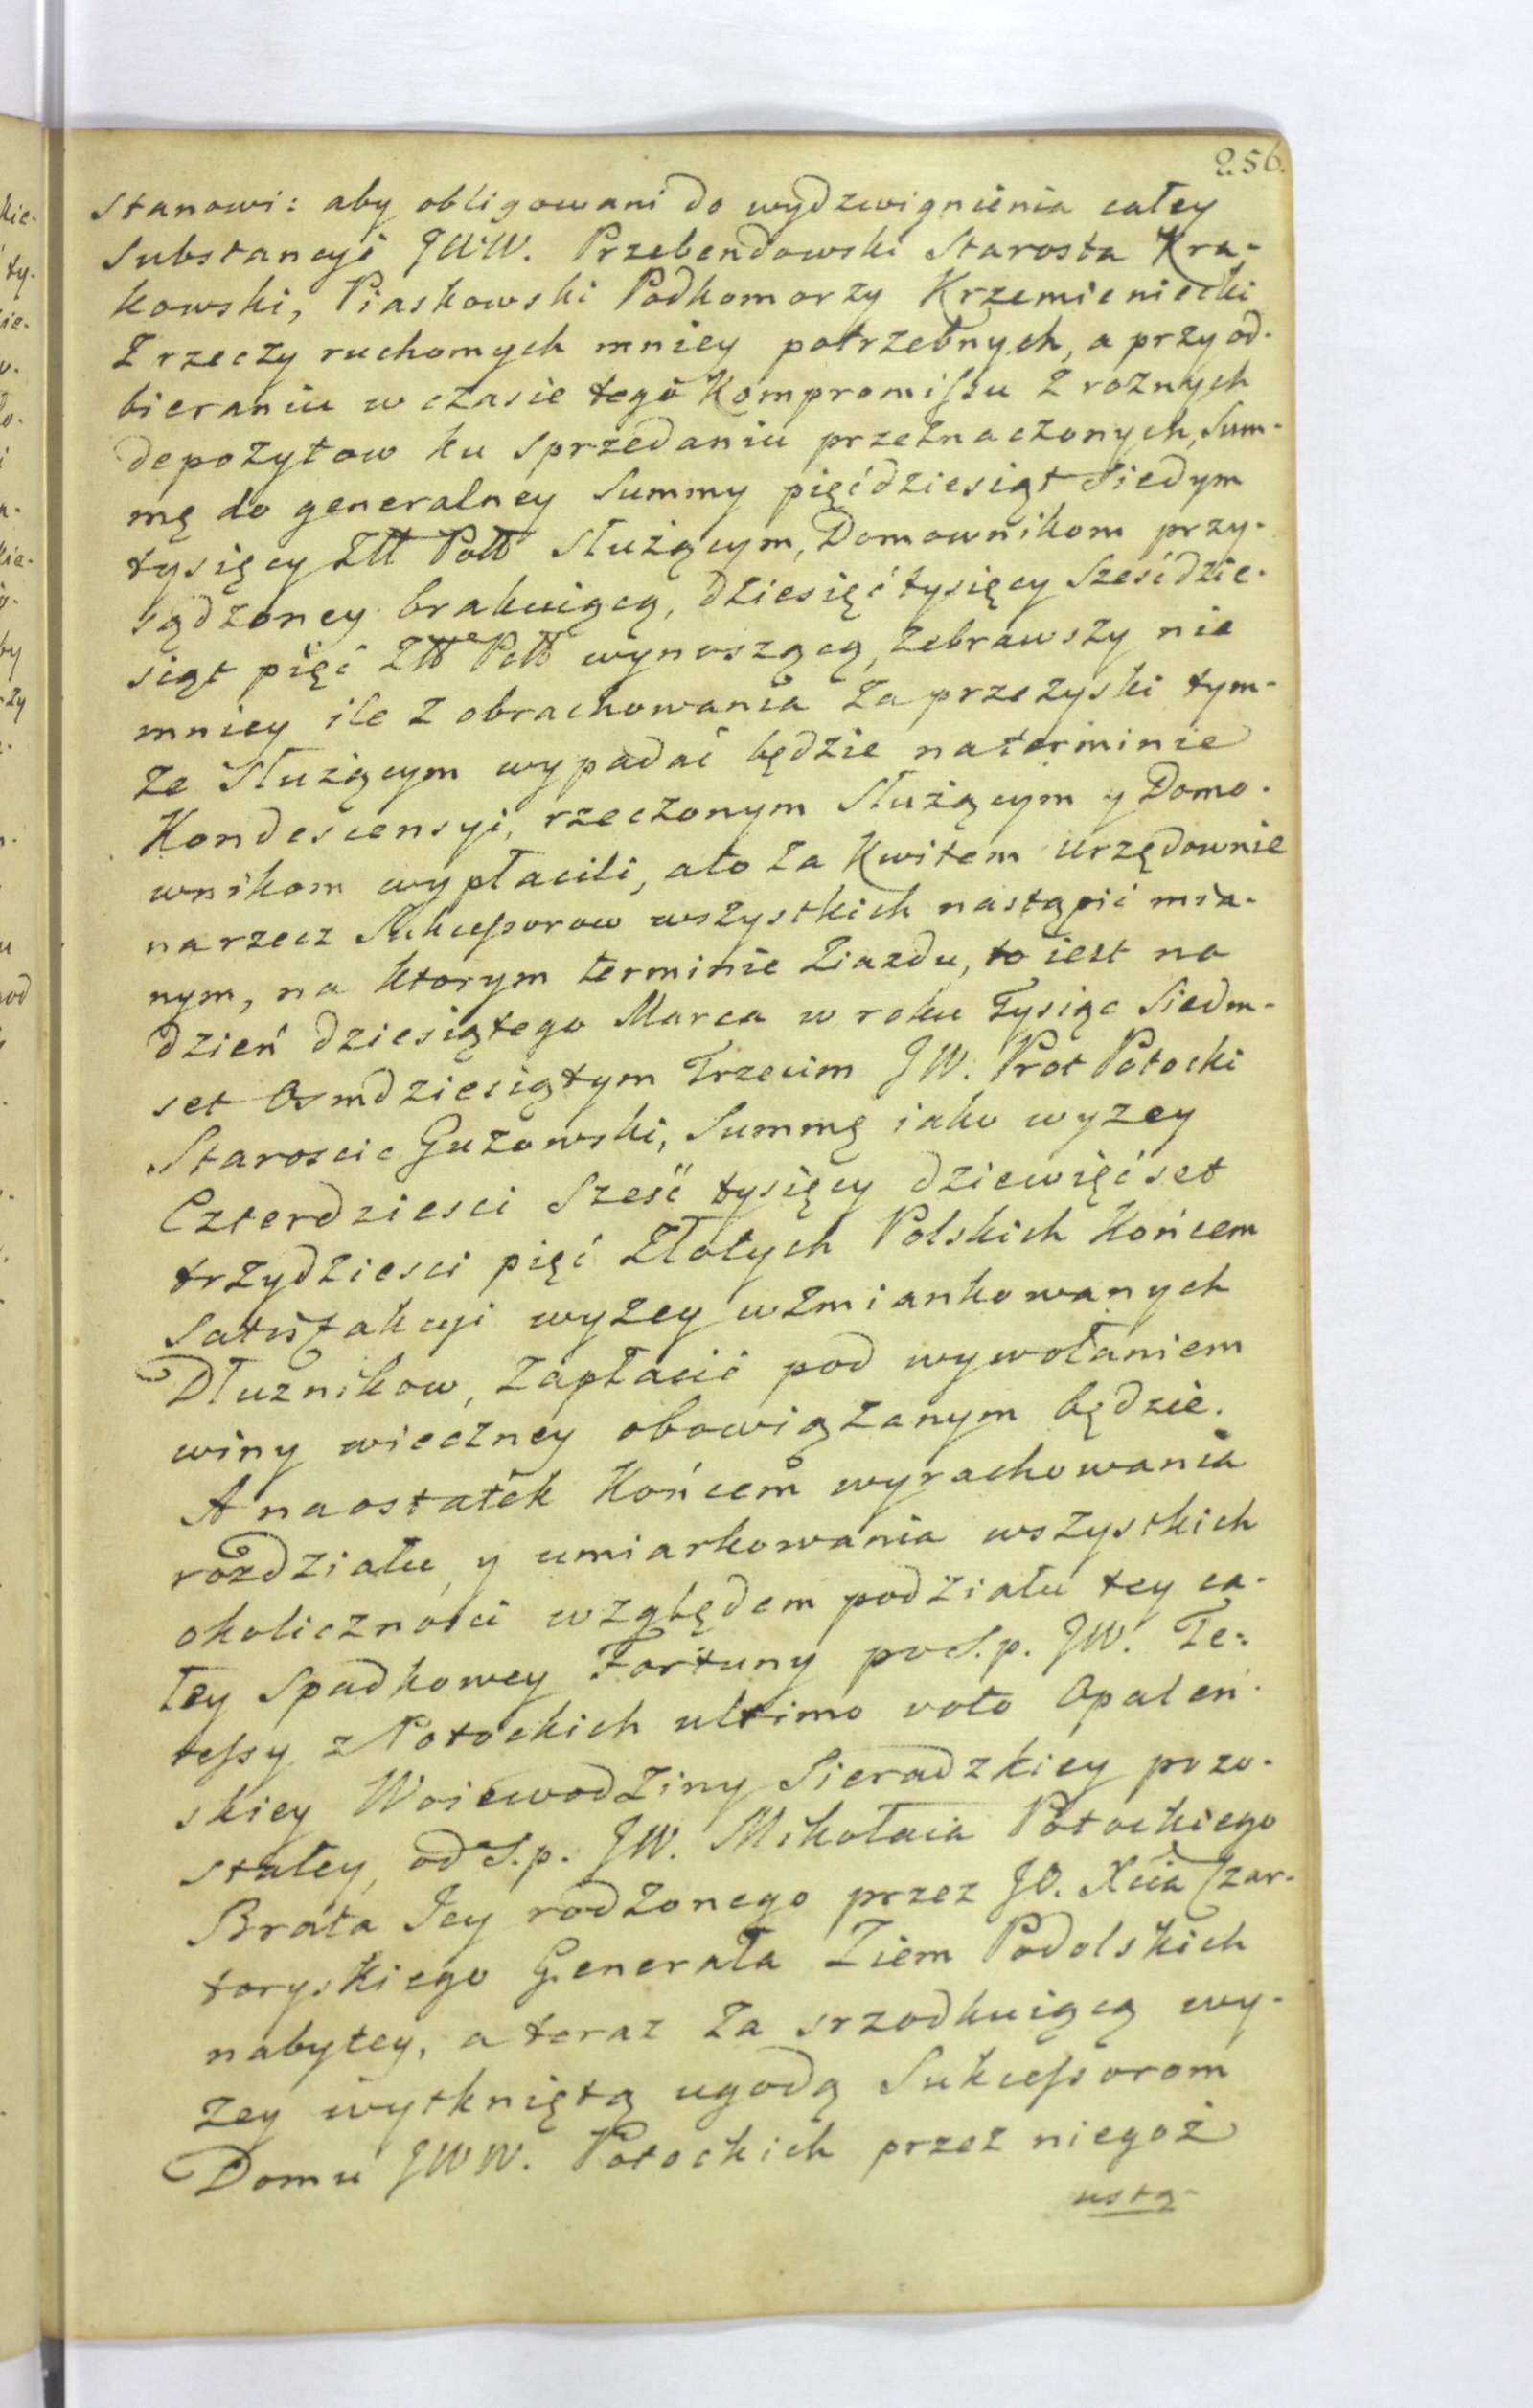 256.
stanowi: aby obligowani do wydzwignienia całey
Substancyi JWW. Przebendowski Starosta Kra-
kowski, Piaskowski Podkomorzy Krzemieniecki
Z rzeczy ruchomych mniey potrzebnych, a przy od-
bieraniu w czasie tego Kompromissu z roznych
depozytow ku sprzedaniu przeznaczonych, Sum-
mę do generalney Summy pięćdziesiąt Siedym
tysięcy Złł Poll Służącym, Domownikom przy-
sądzoney brakuiącą, dziesięć tysięcy sześćdzie-
siąt pięć Złł Poll wynoszącą, zebrawszy nie
mniey ile z obrachowania za przezyski tym-
że Służącym wypadać będzie na terminie
Kondescensyi, rzeczonym Służącym y Domo-
wnikom wypłacili, a to za Kwitem urzędownie
na rzecz Sukcessorow wszystkich nastąpić mia-
nym, na ktorym terminie Ziazdu, to iest na
dzień dziesiątego Marca w roku Tysiąc Siedm-
set Osmdziesiątym Trzecim JW. Prot Potocki
Starościc Guzowski, Summę iako wyzey
Czterdziesci Sześć tysięcy dziewięćset
trzydziesci pięć Złotych Polskich Końcem
Satisfakcyi wyzey wzmiankowanych
Dłuznikow, zapłacić pod wywołaniem
winy wieczney obowiązanym będzie.
A naostatek Końcem wyrachowania
rozdziału, y umiarkowania wszystkich
okoliczności względem podziału tey ca-
łey Spadkowey Fortuny po S.p. JW. Te-
ressy z Potockich ultimo voto Opaleń-
skiey Woiewodziny Sieradzkiey pozo-
stałey, od S.p. JW. Mikołaia Potockiego
Brata Jey rodzonego przez JO. Xcia Czar-
toryskiego Generała Ziem Podolskich
nabytey, a teraz za srzodkuiącą wy-
zey wytkniętą ugodą Sukcessorom
Domu JWW. Potockich przez niegoż
ustą-